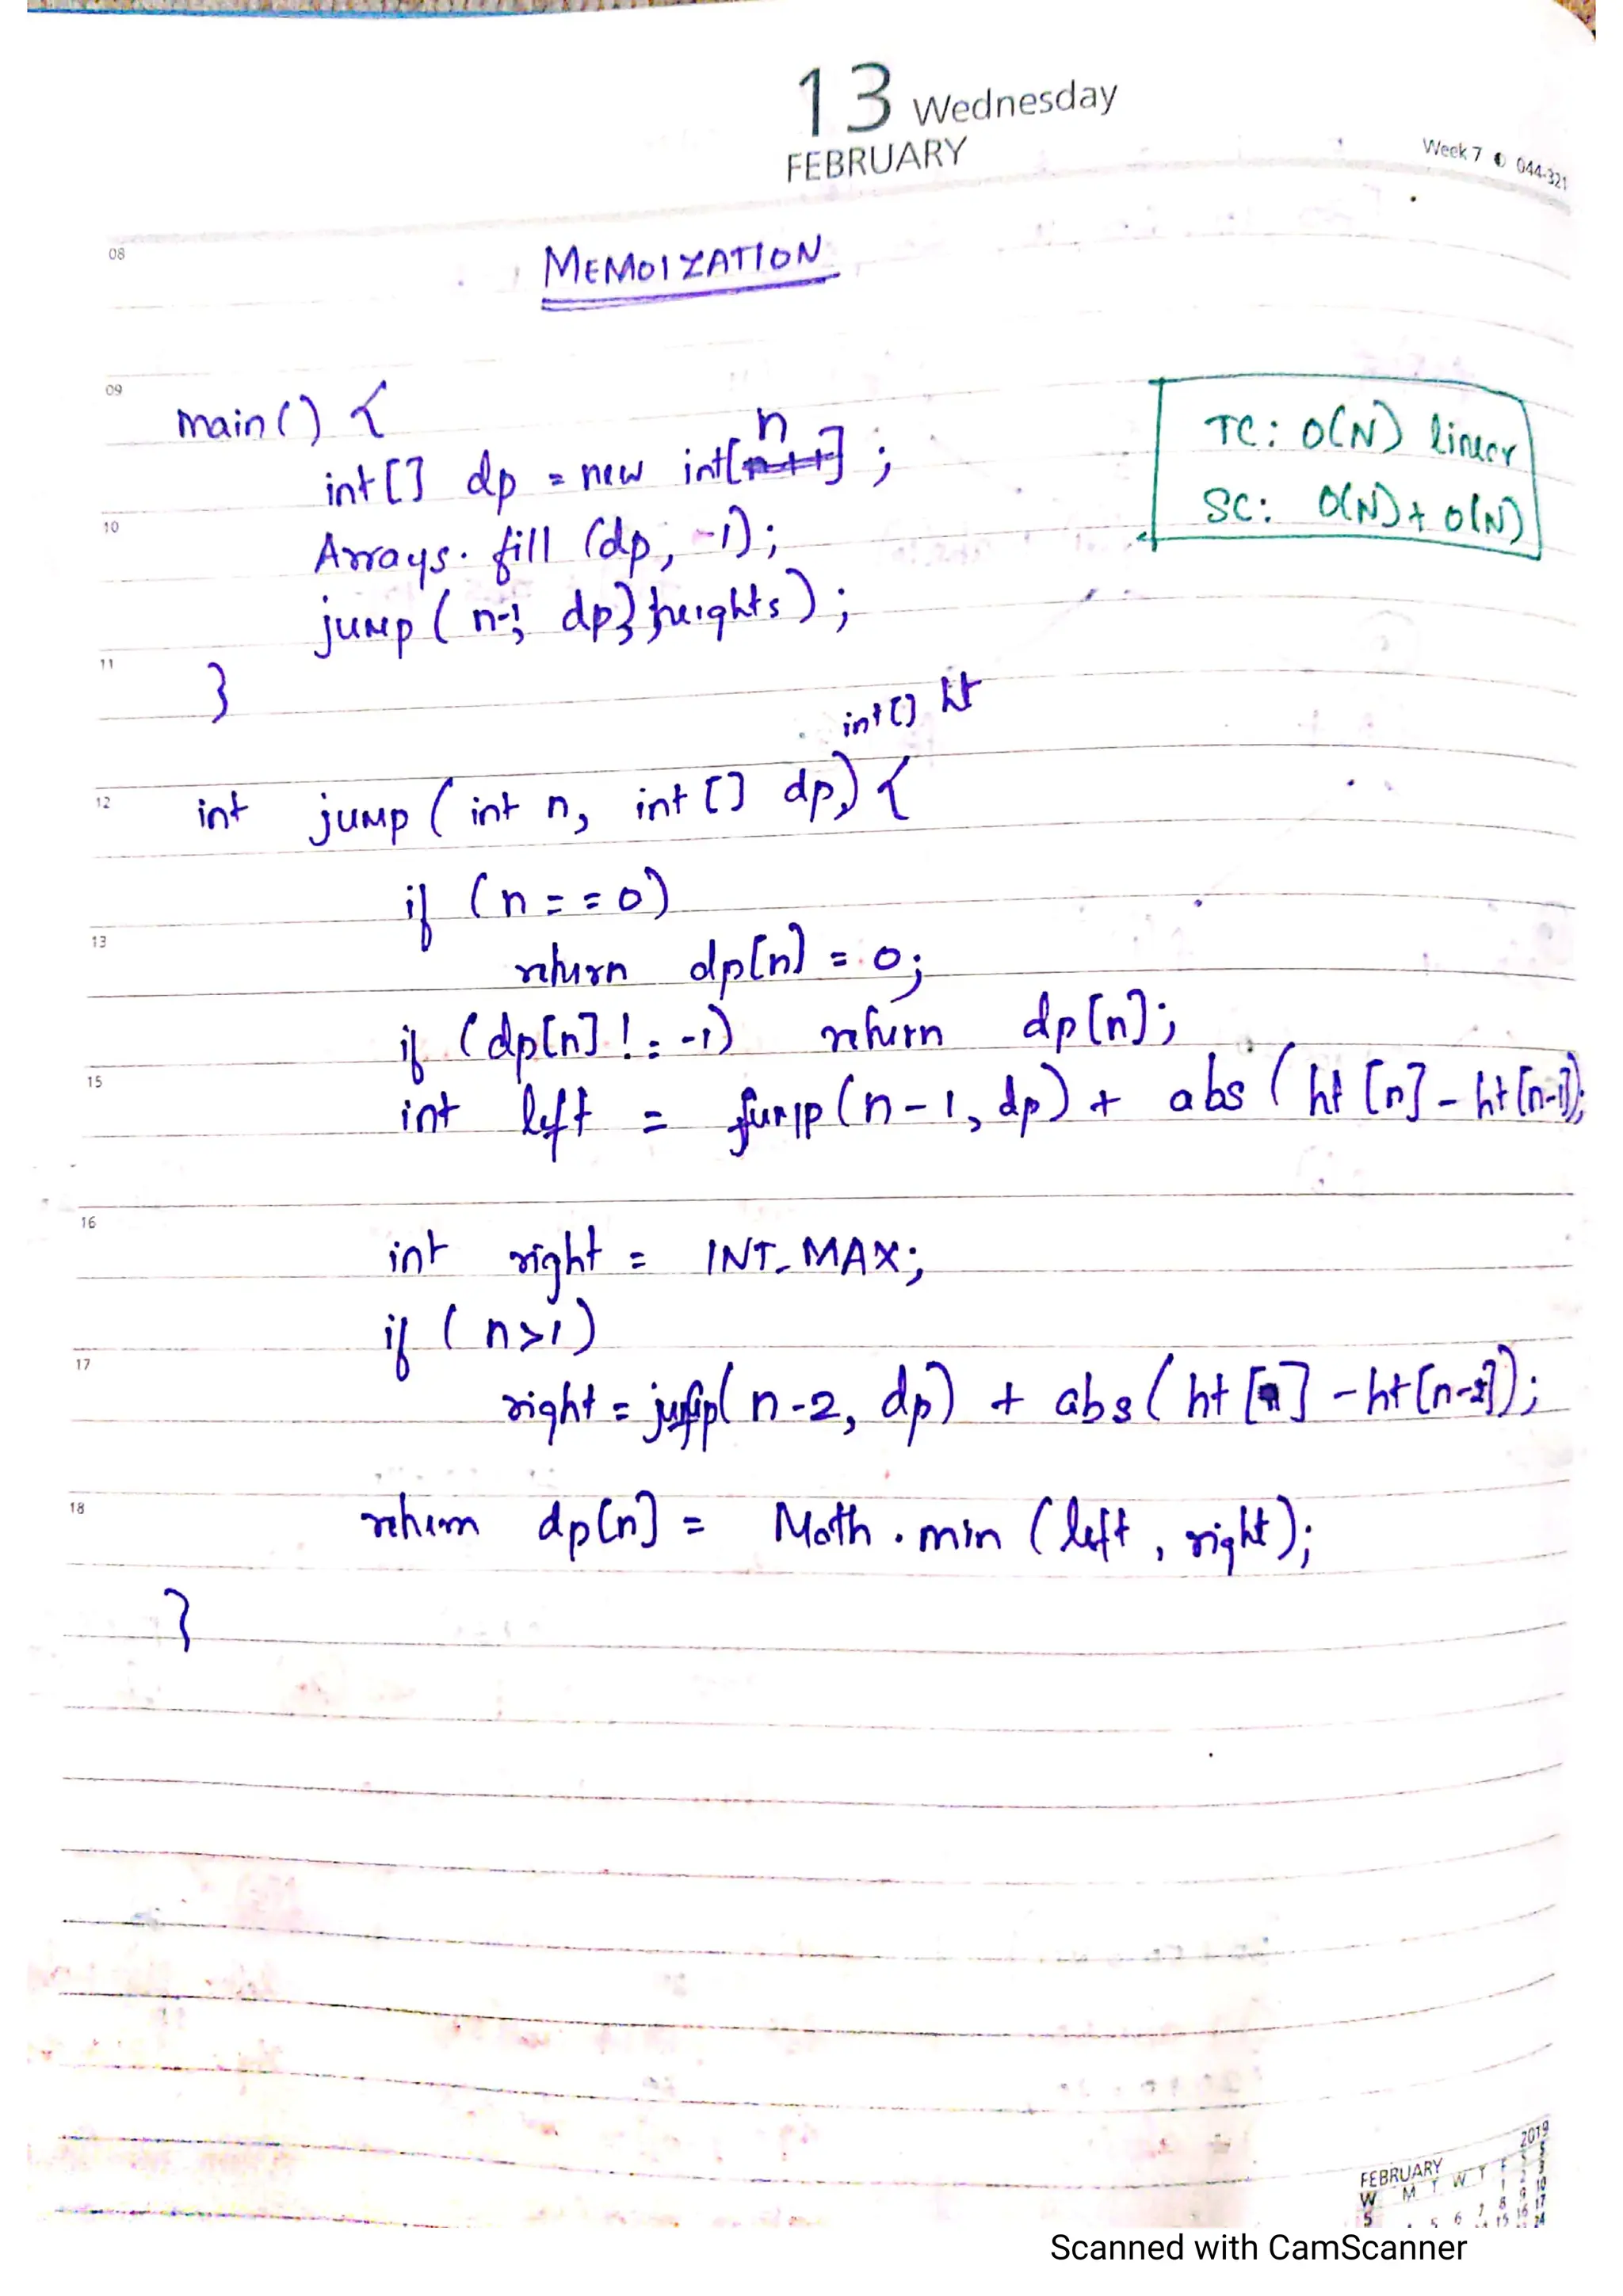 13 Wednesday
FEBRUARY
Week 7 044-321
08
MEMOIZATION
09
main() {
n
int[] dp = new int[n++];
TC: O(N) linear
SC: O(N) + O(N)
10
Arrays.fill (dp, -1);
jump (n-1, dp, heights);
11
}
int[] ht
12
int jump (int n, int[] dp,) {
if (n == 0)
13
return dp[n] = 0;
if (dp[n] != -1) return dp[n];
15
int left = jump (n-1, dp) + abs (ht [n] - ht [n-1]);
16
int right = INT_MAX;
if (n>1)
17
right = jump( n-2, dp) + abs (ht [n] - ht [n-2]);
18
return dp[n] = Math.min (left, right);
}
2019
FEBRUARY
W M T W T F S S
Scanned with CamScanner